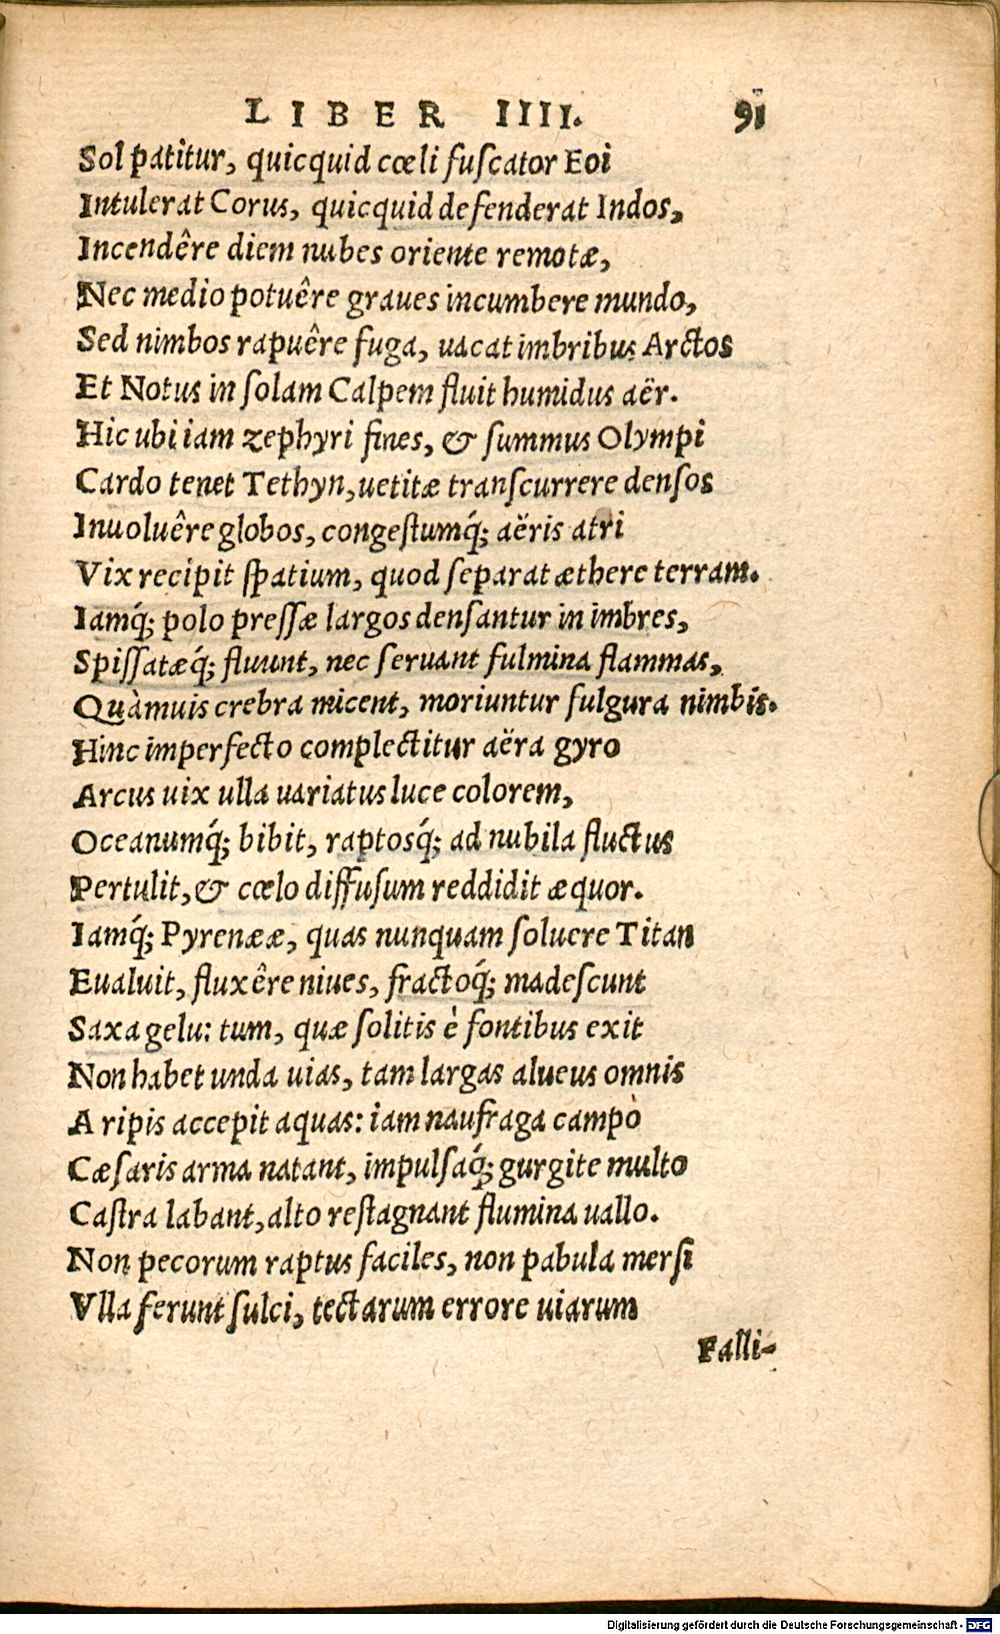 LIBER IIII. 91
Sol patitur, quicquid cœli fuscator Eoi
Intulerat Corus, quicquid defenderat Indos,
Incendêre diem nubes oriente remotæ,
Nec medio potuêre graues incumbere mundo,
Sed nimbos rapuêre fuga, uacat imbribus Arctos
Et Notus in solam Calpem fluit humidus aër.
Hic ubi iam zephyri fines, & summus Olympi
Cardo tenet Tethyn, uetitæ transcurrere densos
Inuoluêre globos, congestumq́; aëris atri
Vix recipit spatium, quod separat æthere terram.
Iamq́; polo pressæ largos densantur in imbres,
Spissatæq́; fluunt, nec seruant fulmina flammas,
Quàmuis crebra micent, moriuntur fulgura nimbis.
Hinc imperfecto complectitur aëra gyro
Arcus uix ulla uariatus luce colorem,
Oceanumq́; bibit, raptosq́; ad nubila fluctus
Pertulit, & cœlo diffusum reddidit æquor.
Iamq́; Pyrenææ, quas nunquam soluere Titan
Eualuit, fluxêre niues, fractoq́; madescunt
Saxa gelu: tum, quæ solitis è fontibus exit
Non habet unda uias, tam largas alueus omnis
A ripis accepit aquas: iam naufraga campo
Cæsaris arma natant, impulsaq́; gurgite multo
Castra labant, alto restagnant flumina uallo.
Non pecorum raptus faciles, non pabula mersi
Vlla ferunt sulci, tectarum errore uiarum
Falli-
Digitalisierung gefördert durch die Deutsche Forschungsgemeinschaft - DFG